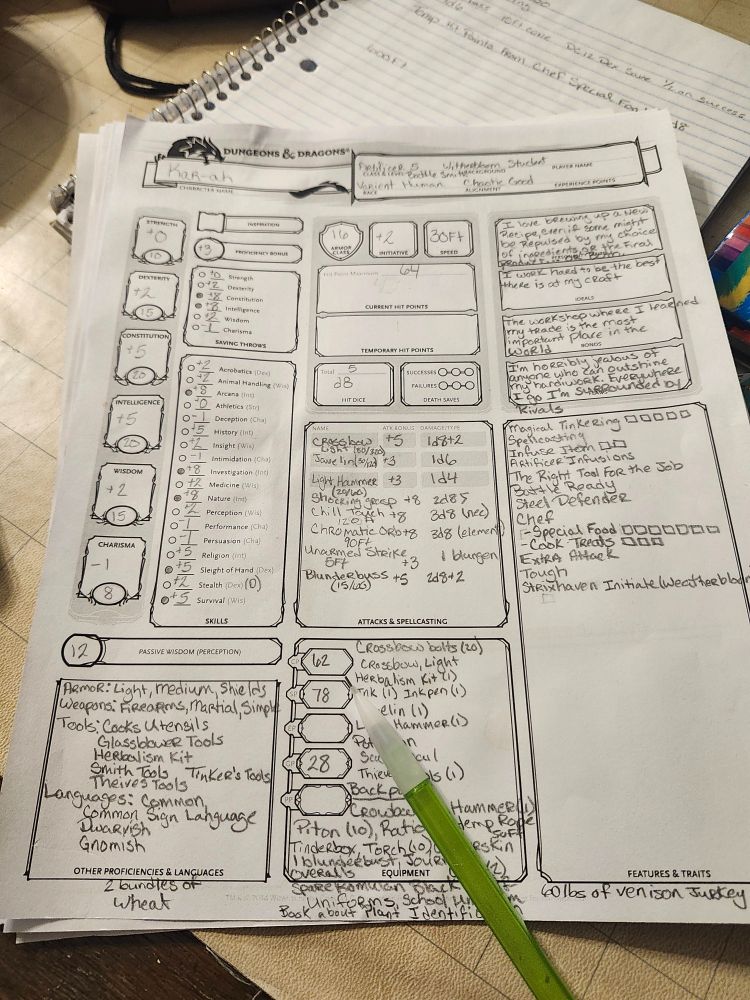 DC12 Dex Save 1/2 on success
Temp Hit Points from Chef Special Food 1d8
DUNGEONS & DRAGONS®
Kar-ah
CHARACTER NAME
Artificer 5 Witherbloom Student
CLASS & LEVEL Battle Smith BACKGROUND PLAYER NAME
Varient Human Chaotic Good
RACE ALIGNMENT EXPERIENCE POINTS
STRENGTH
+0
10
DEXTERITY
+2
15
CONSTITUTION
+5
20
INTELLIGENCE
+5
20
WISDOM
+2
15
CHARISMA
-1
8
INSPIRATION
+3 PROFICIENCY BONUS
+0 Strength
+2 Dexterity
+8 Constitution
+8 Intelligence
+2 Wisdom
-1 Charisma
SAVING THROWS
+2 Acrobatics (Dex)
+2 Animal Handling (Wis)
+8 Arcana (Int)
+0 Athletics (Str)
-1 Deception (Cha)
+5 History (Int)
+2 Insight (Wis)
-1 Intimidation (Cha)
+8 Investigation (Int)
+2 Medicine (Wis)
+8 Nature (Int)
+2 Perception (Wis)
-1 Performance (Cha)
-1 Persuasion (Cha)
+5 Religion (Int)
+5 Sleight of Hand (Dex)
+2 Stealth (Dex) (D)
+5 Survival (Wis)
SKILLS
12 PASSIVE WISDOM (PERCEPTION)
Armor: Light, Medium, Shields
Weapons: Firearms, Martial, Simple
Tools: Cooks Utensils
Glassblower Tools
Herbalism Kit
Smith Tools Tinker's Tools
Theives Tools
Languages: Common,
Common Sign Language
Dwarvish
Gnomish
OTHER PROFICIENCIES & LANGUAGES
2 bundles of
wheat
16
ARMOR CLASS
+2
INITIATIVE
30FT
SPEED
Hit Point Maximum 64
CURRENT HIT POINTS
TEMPORARY HIT POINTS
Total 5
d8
HIT DICE
SUCCESSES
FAILURES
DEATH SAVES
NAME ATK BONUS DAMAGE/TYPE
Crossbow +5 1d8+2
Light (80/320)
Javelin (30/120) +3 1d6
Light Hammer +3 1d4
(20/60)
Shocking grasp +8 2d8
Chill Touch +8 3d8 (nec)
120 ft
Chromatic Orb +8 3d8 (element)
90FT
Unarmed Strike +3 1 blungen
5FT
Blunderbuss +5 2d8+2
(15/60)
ATTACKS & SPELLCASTING
62
78
28
PP
Crossbow bolts (20)
Crossbow, Light
Herbalism Kit (1)
Ink (1) Inkpen (1)
elin (1)
Hammer (1)
Thie
Backp
Crowba Hammer (1)
Piton (10), Ratio Hemp Rope
50ft
Tinderbox, Torch (10), rskin
1 blunderbust, Jour
Overalls
EQUIPMENT
Spare Romulan Black
Uniforms, School Un
Book about Plant Identific
I love brewing up a new
Recipe, even if some might
be Repulsed by my choice
of ingredients, or the final
product.
I work hard to be the best
there is at my craft
IDEALS
The workshop where I learned
my trade is the most
important Place in the
World
BONDS
I'm horribly jealous of
anyone who can outshine
my handiwork. Everywhere
I go I'm surrounded by
Rivals
Magical Tinkering
Spellcasting
Infuse Item
Artificer Infusions
The Right Tool For the Job
Battle Ready
Steel Defender
Chef
-Special Food
-Cook Treats
Extra Attack
Tough
Strixhaven Initiate (Weatherbloom
FEATURES & TRAITS
60lbs of venison Jurkey